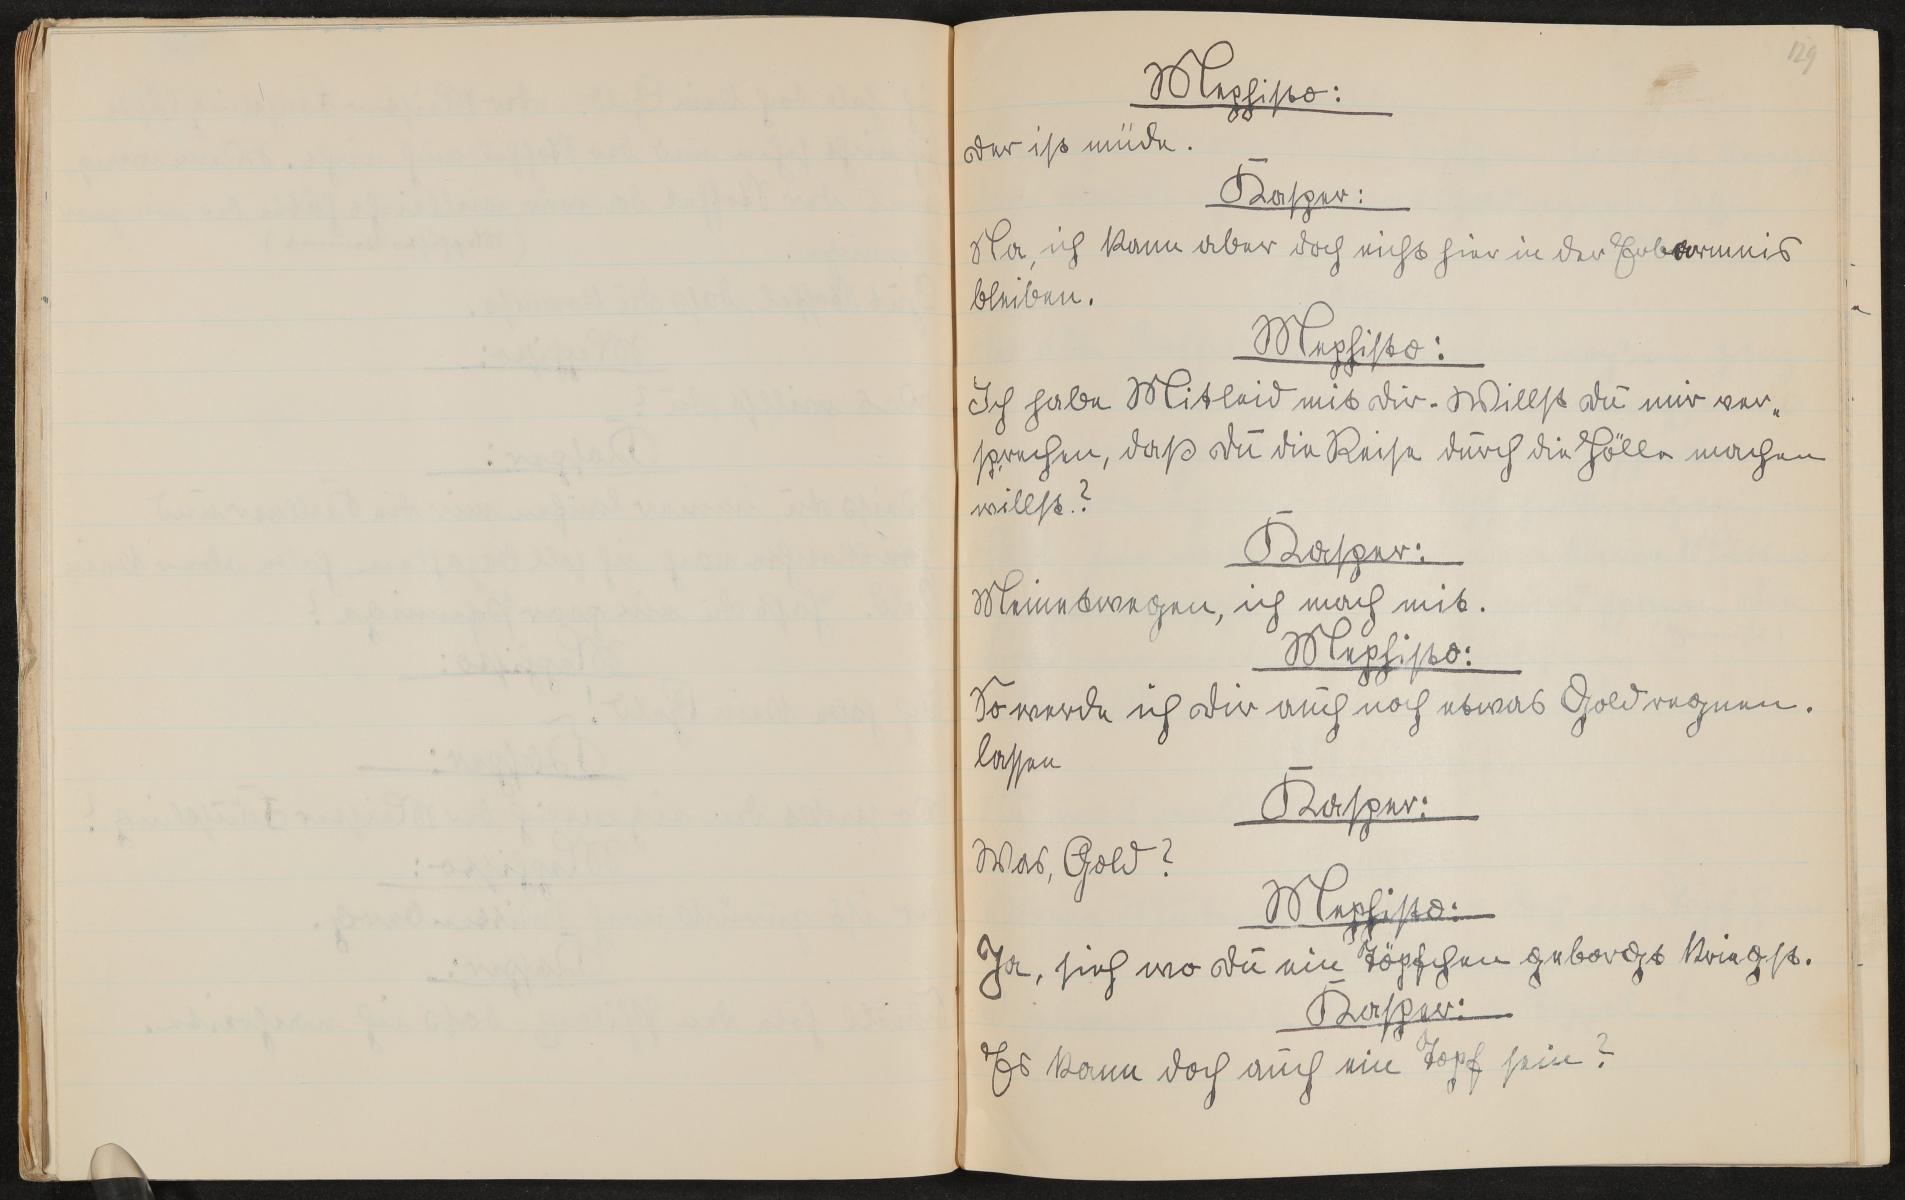 129
Mephisto:
der ist müde.
Kasper:
Na, ich kann aber doch nicht hier in der Erbarmnis
bleiben.
Mephisto:
Ich habe Mitleid mit dir. Willst du mir ver„
sprechen, daß du die Reise durch die Hölle machen
willst?
Kasper:
Meinetwegen, ich mach mit.
Mephisto:
So werde ich dir auch noch etwas Gold regnen.
lassen
Kasper:
Was, Gold?
Mephisto:
Ja, sieh wo du ein Töpfchen geborgt kriegst.
Kasper:
Es kann doch auch ein Topf sein?